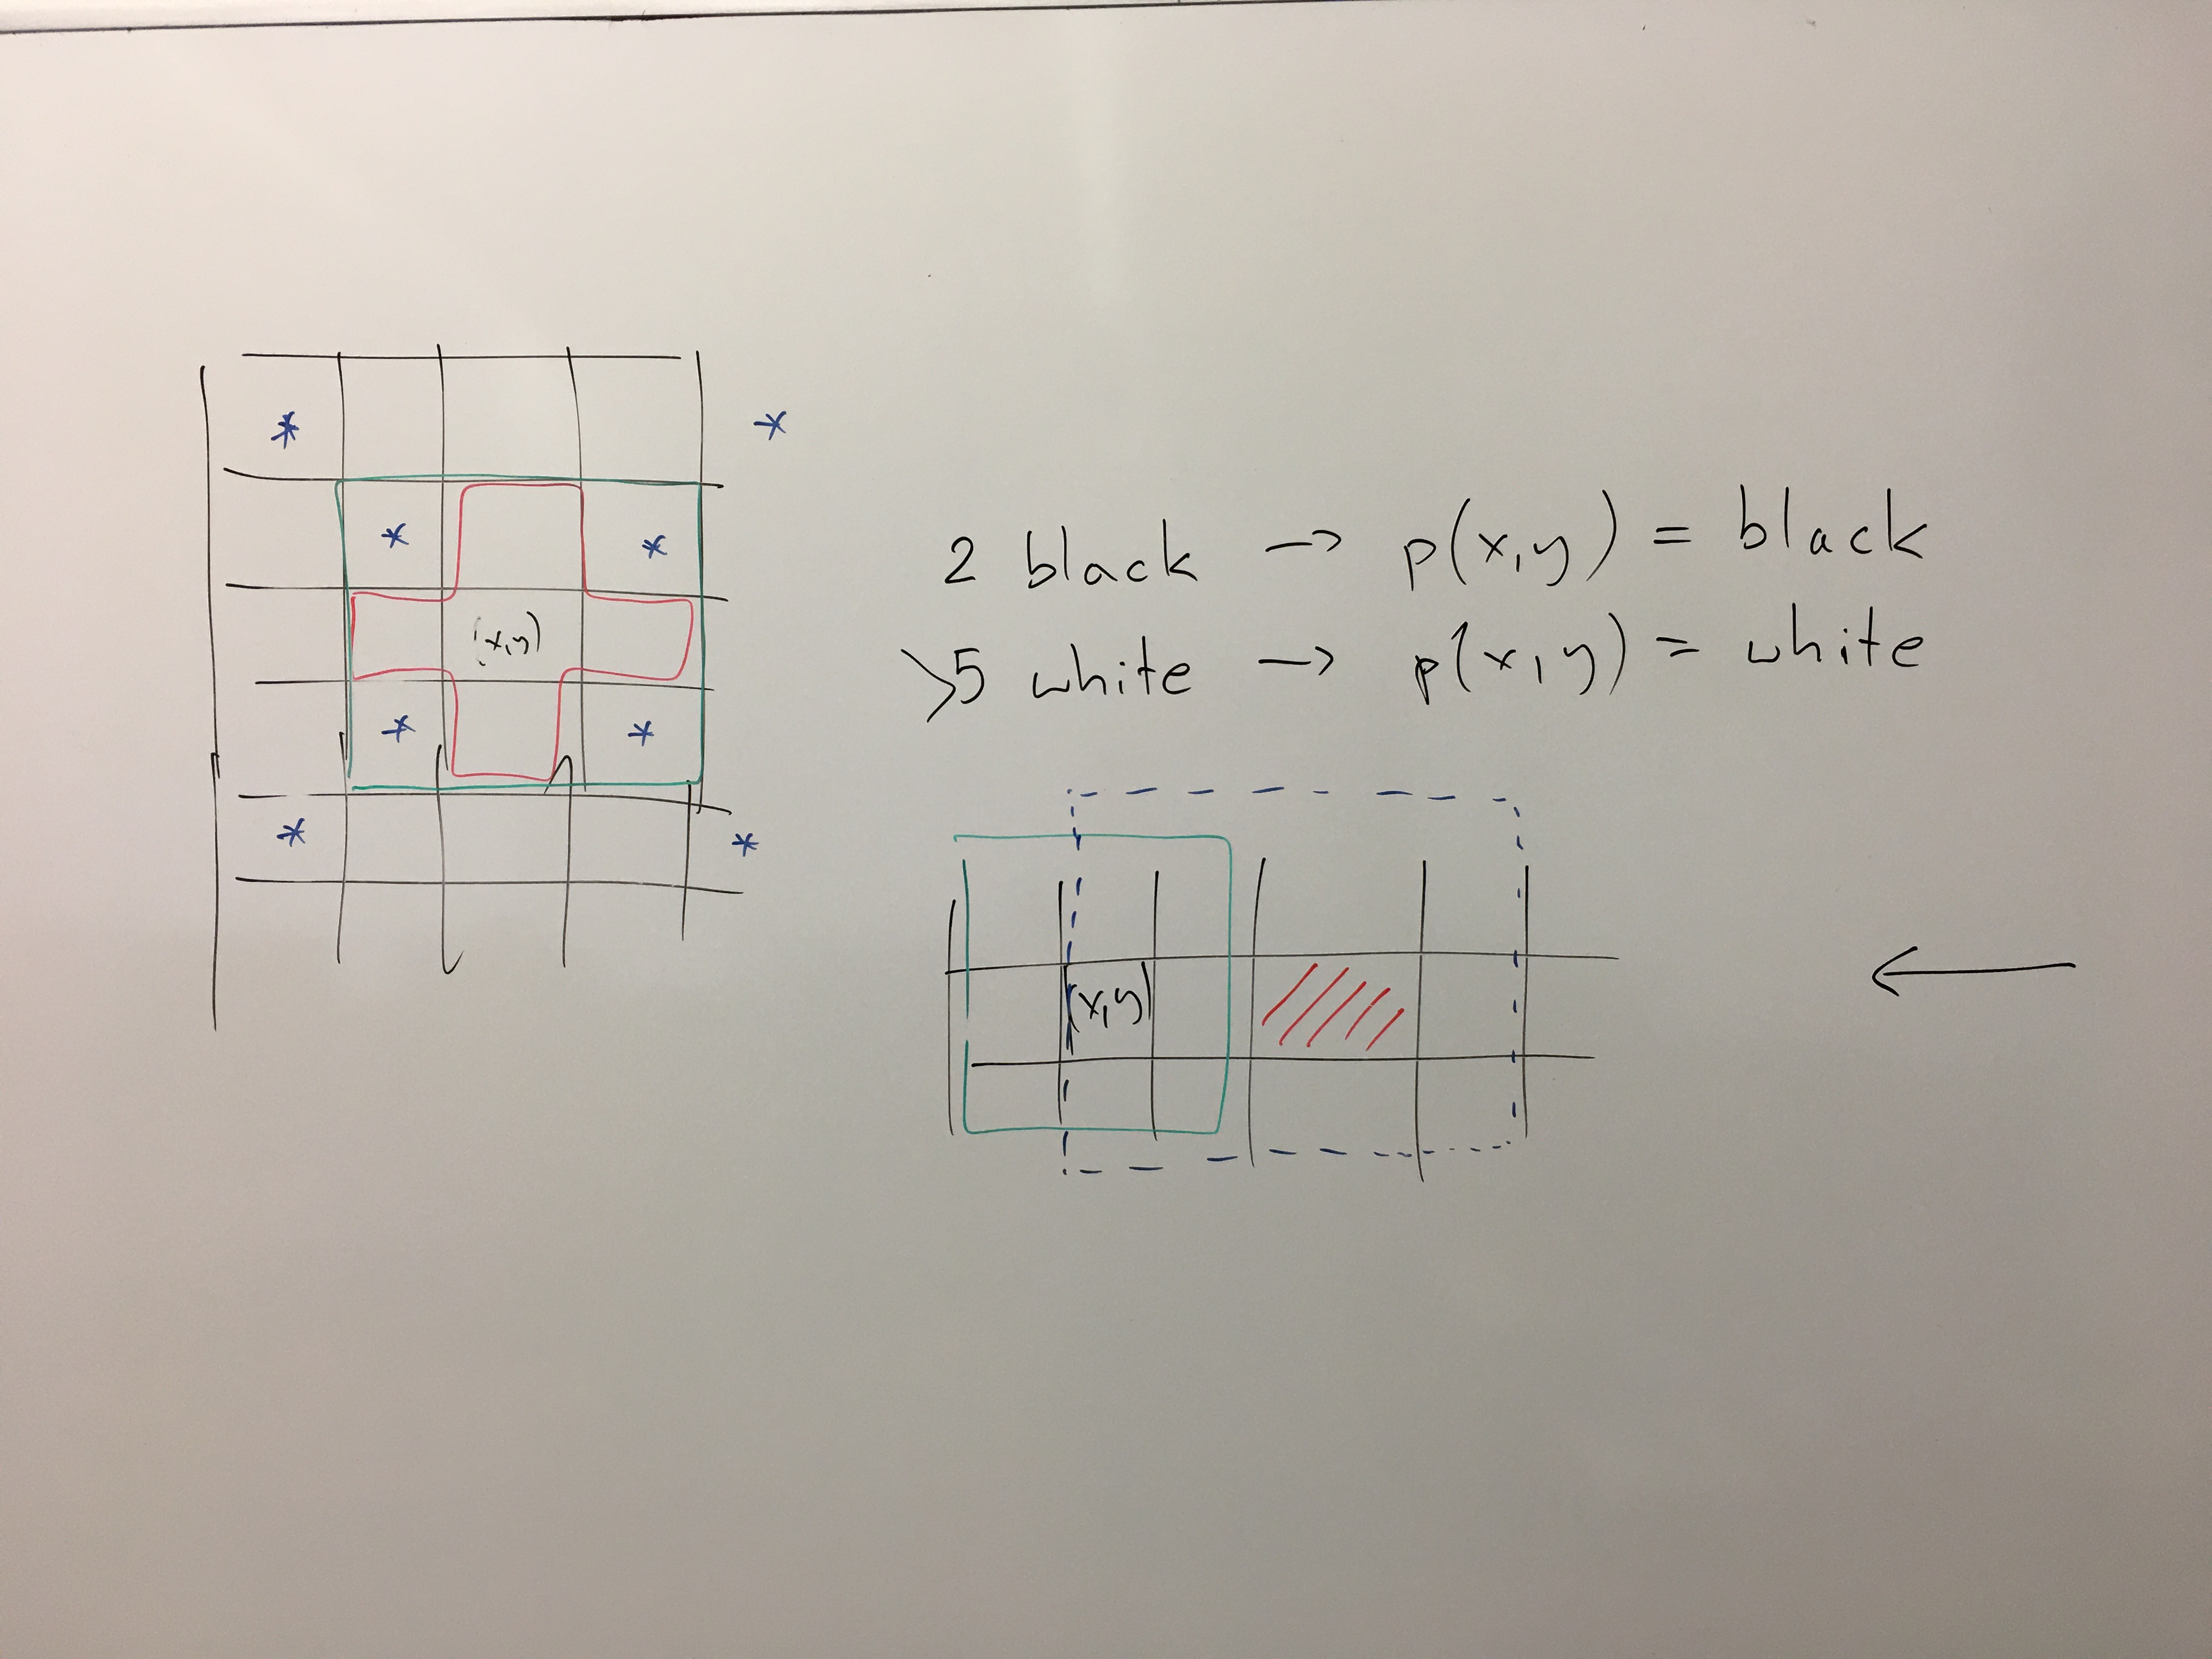 * *
* *
(x,y)
* *
* *
2 black → p(x,y) = black
>5 white → p(x,y) = white
(x,y)
←